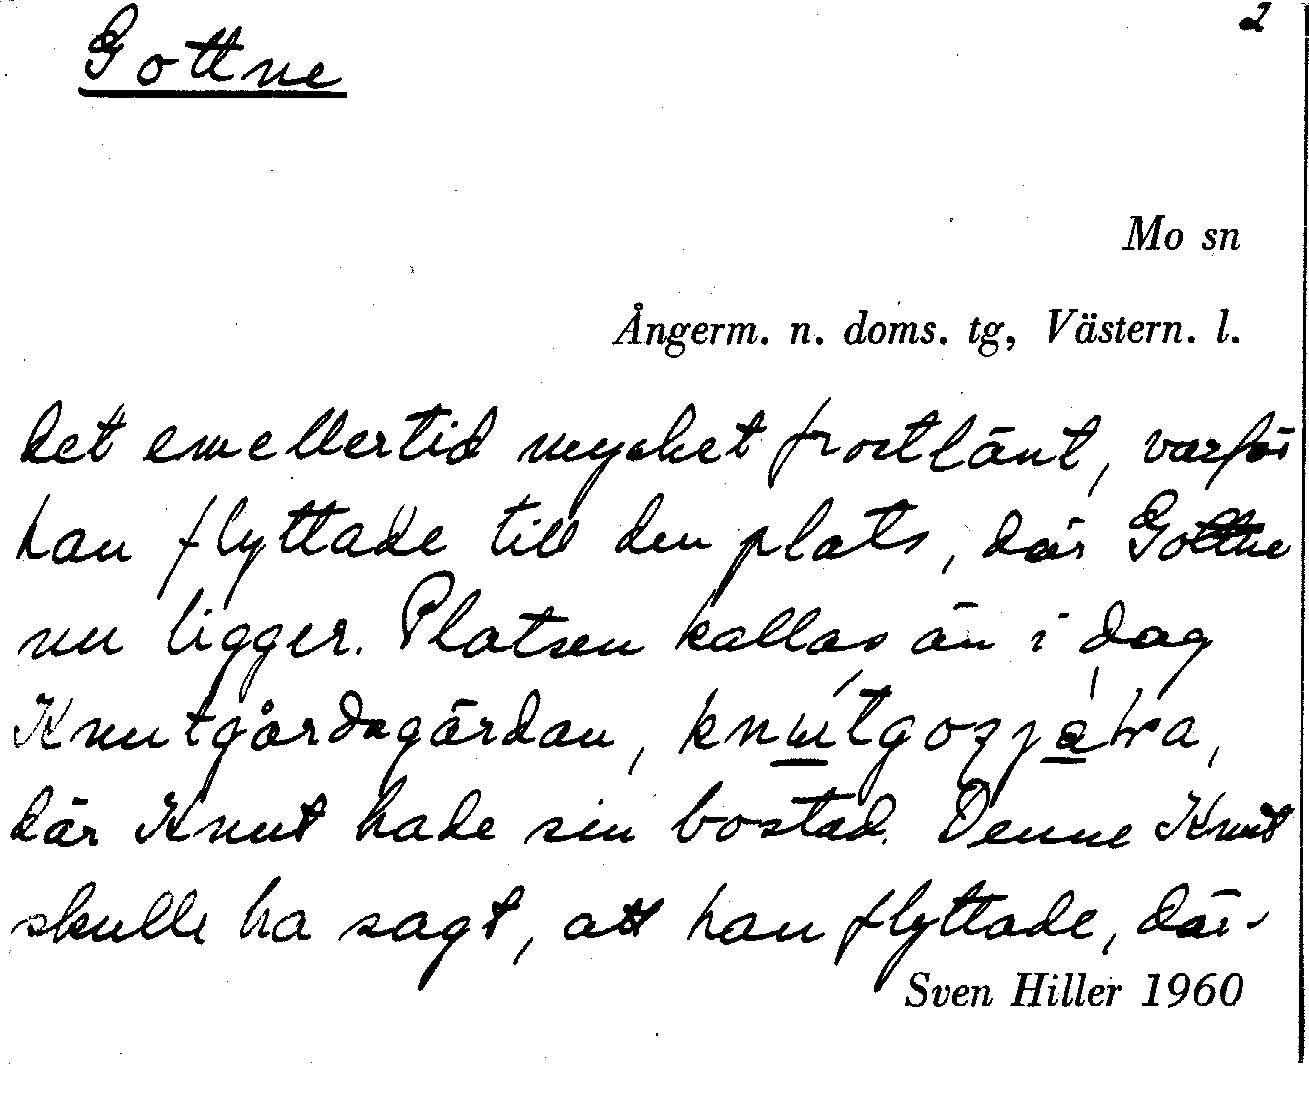 2
Gottne
Mo sn
Ångerm. n. doms. tg, Västern. l.
det emellertid mycket frostlänt, varför
han flyttade till den plats, där Gottne
nu ligger. Platsen kallas än i dag
Knutgårdsgärdan,
där Knut hade sin bostad. Denne Knut
skulle ha sagt, att han flyttade, där-
Sven Hiller 1960